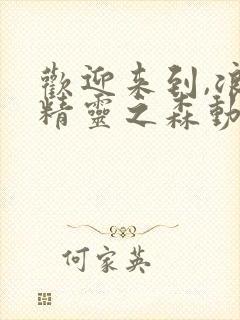 歡迎来到,
精靈之森動
何家英